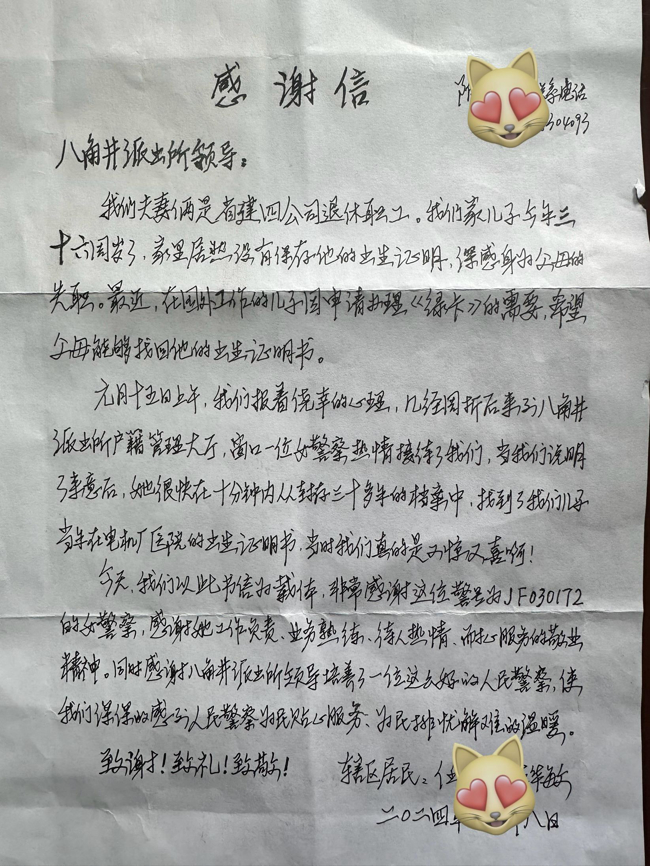 感谢信
附
联系电话
304093
八角井派出所领导：
我们夫妻俩是省建四公司退休职工。我们家儿子今年三
十六周岁了，家里居然没有保存他的出生证明，深感身为父母的
失职。最近，在国外工作的儿子因申请办理《绿卡》的需要，希望
父母能够找回他的出生证明书。
元月十五日上午，我们报着侥幸的心理，几经周折后来到八角井
派出所户籍管理大厅，窗口一位女警察热情接待了我们，当我们说明
了来意后，她很快在十分钟内从封存三十多年的档案中，找到了我们儿子
当年在电机厂医院的出生证明书，当时我们真的是又惊又喜啊！
今天，我们以此书信为载体，非常感谢这位警号为JF030172
的女警察，感谢她工作负责、业务熟练、待人热情、耐心服务的敬业
精神。同时感谢八角井派出所领导培养了一位这么好的人民警察，使
我们深深的感到人民警察为民贴心服务、为民排忧解难的温暖。
致谢！致礼！致敬！
辖区居民：任 华敏
二〇二四年 八日